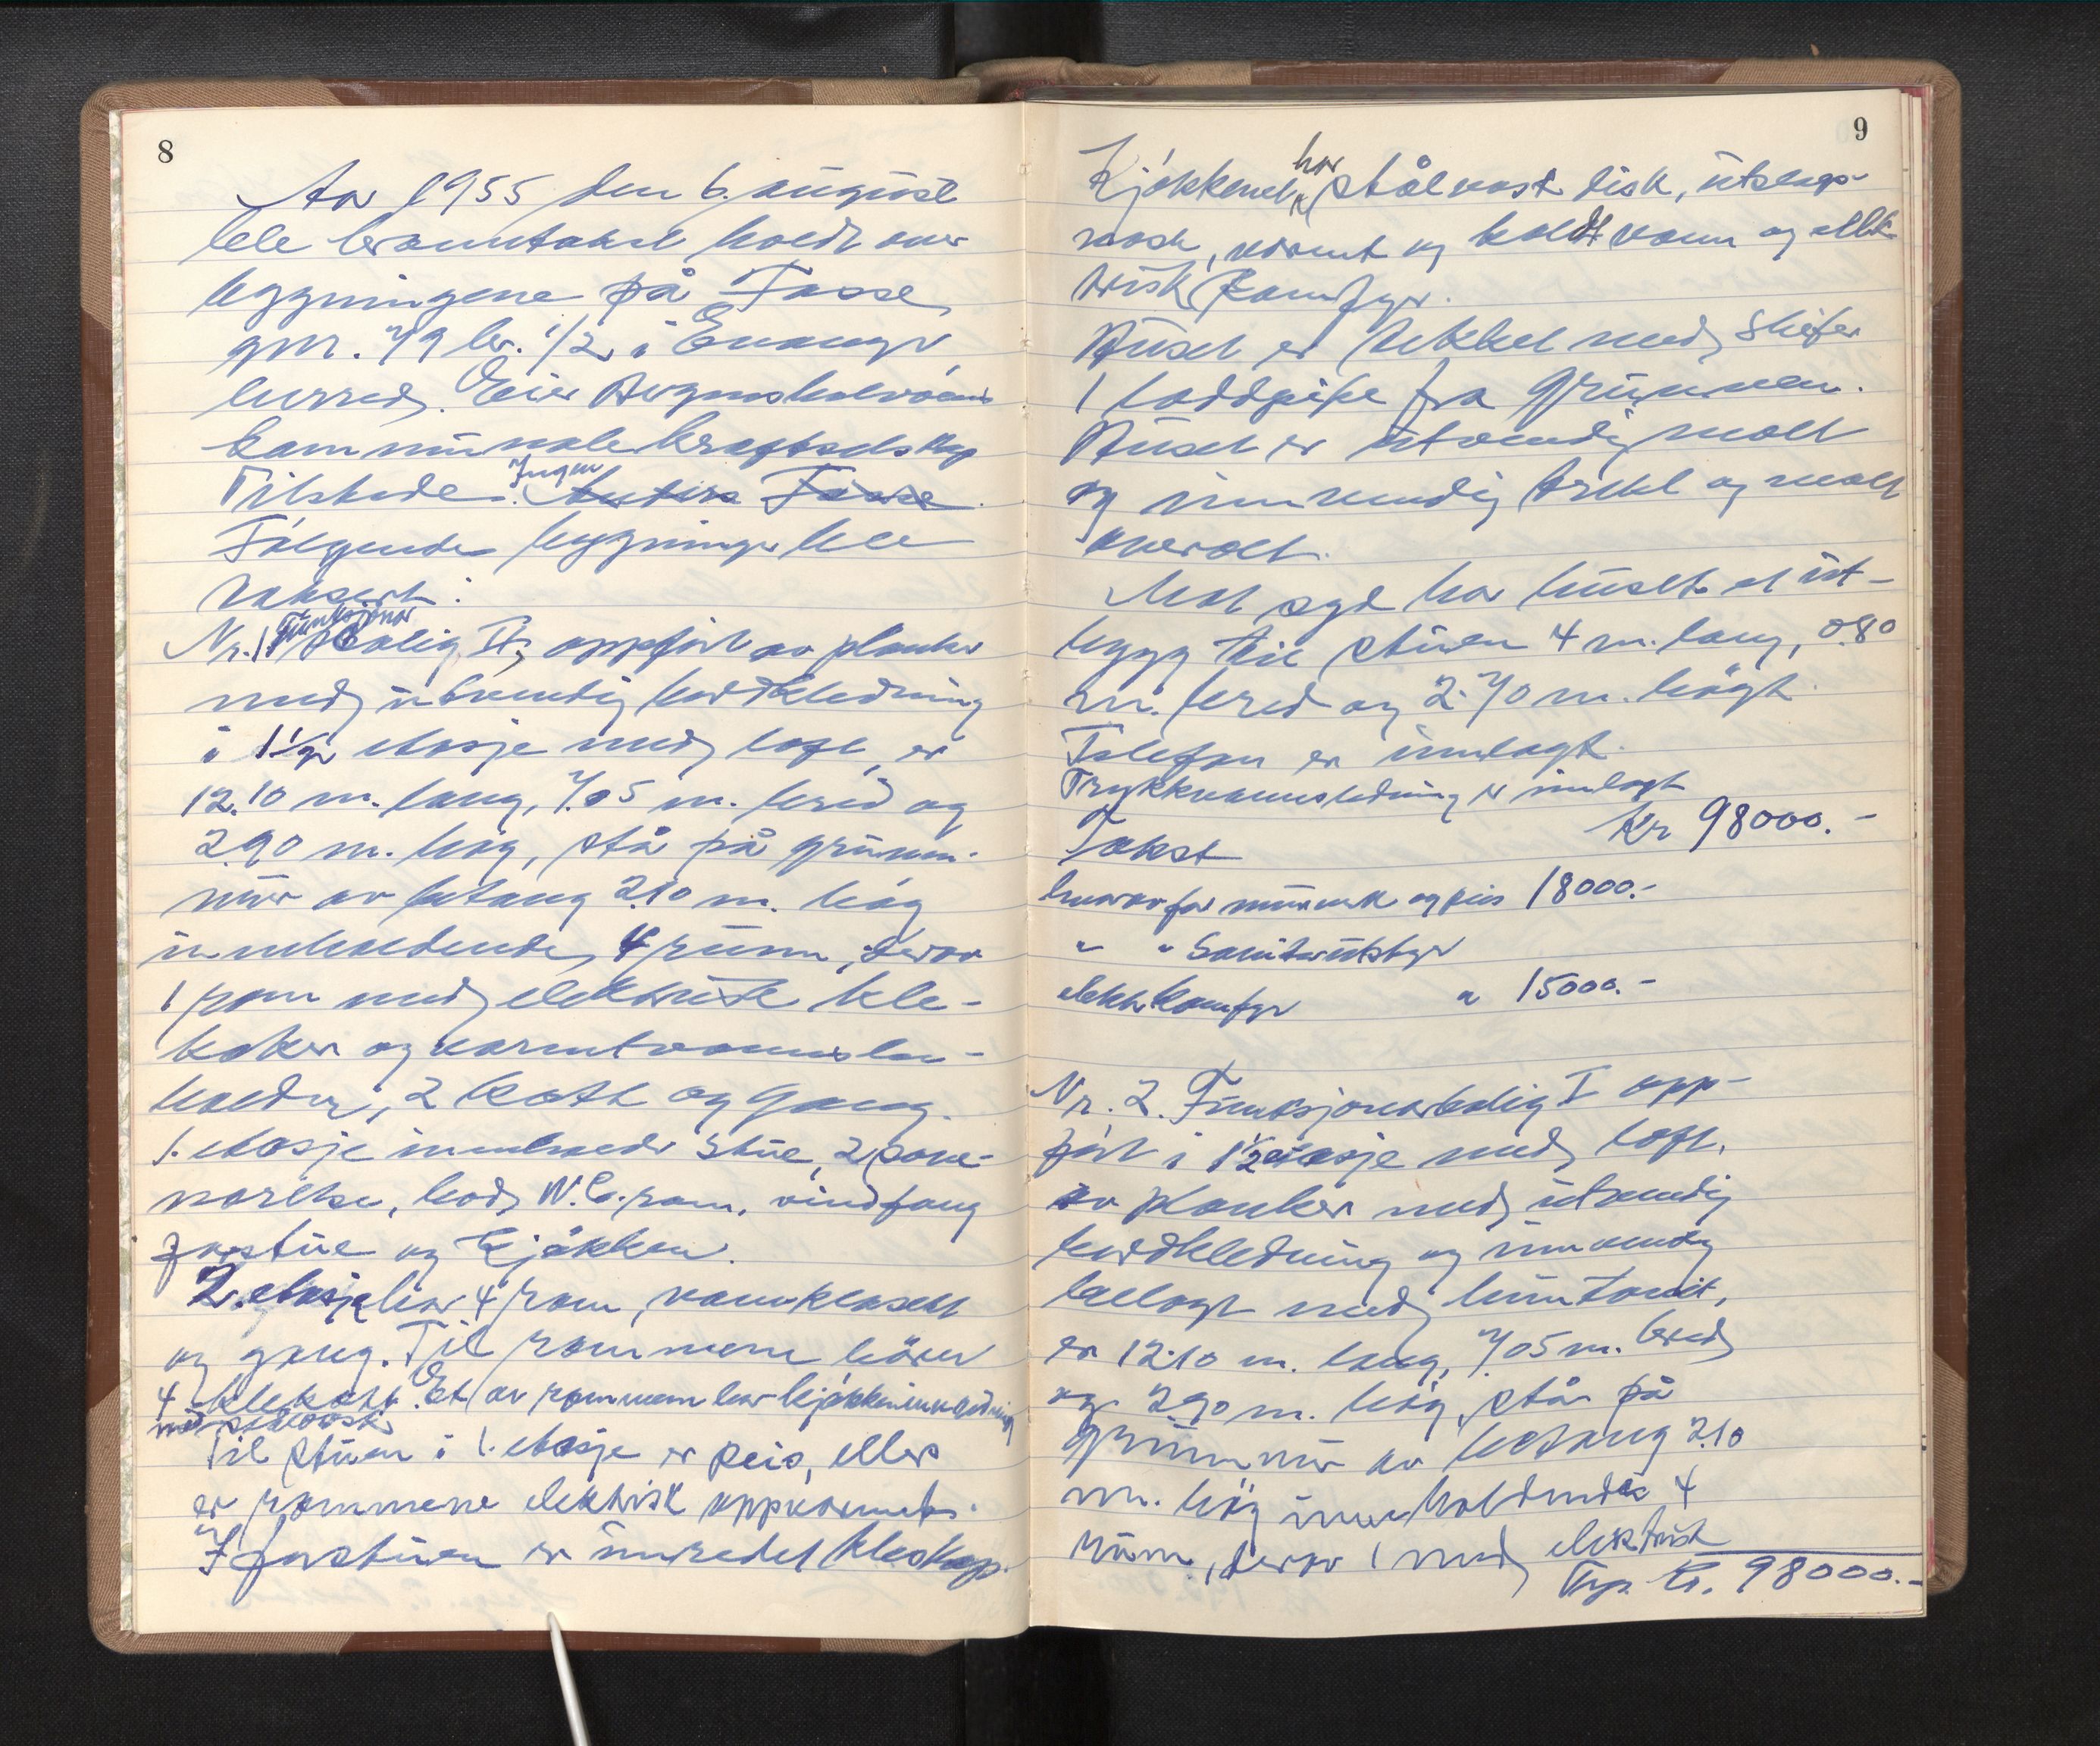 8
Aar 1955 den 6. august
ble branntakst holdt over
bygningene på Fosse
gnr. 79 br. 1/2 i Evanger
herred. Eier Bergenshalvøens
kommunale kraftselskap
Tilstede: Ingen
Følgende bygninger ble
taksert:
Nr. 1 Funksjonær bolig II, oppført av planker
med utvendig bordkledning
i 1½ etasje med loft, er
12.10 m. lang, 7.05 m. bred og
2.90 m. høg, står på grunn-
mur av betong 2.10 m. høg
innholdende 4 rum, derav
1 rom med elektrisk kle-
koker og varmtvannsbe-
holder, 2 kott og gang.
1. etasje inneholder stue, 2 sove-
værelse, bod, W.C. rom, vindfang
forstue og kjøkken.
2. etasje har 4 rom, vannklosett
og gang. Til rommene hører
4 klekott. Et av rommene har kjøkkeninnredning
med stålvask
Til stuen i 1. etasje er peis, ellers
er rommene elektrisk oppvarmet.
I forstuen er innredet kleskap.
9
Kjøkkenet har stålvask disk, utslags-
vask, varmt og koldt vann og elek-
trisk komfyr.
Huset er tekket med skifer
1 loddpipe fra grunnen.
Huset er utvendig malt
og innvendig trekt og malt
overalt.
Mot syd har huset et ut-
bygg til stuen 4 m. lang, 0.80
m. bred og 2.70 m. høgt.
Telefon er innlagt.
Trykkvannsledning er innlagt
Takst Kr 98000.-
hvorav for murverk og peis 18000.-
" " Sanitærutstyr
elektr. komfyr " 15000.-
Nr. 2. Funksjonærbolig I opp-
ført i 1½ etasje med loft,
av planker med utvendig
bordkledning og innvendig
belagt med huntonit,
er 12.10 m. lang, 7.05 m. bred
og 2.90 m. høg, står på
grunnmur av betong 2.10
m. høg innholdende 4
rum, derav 1 med elektrisk
Trsp. kr. 98000.-